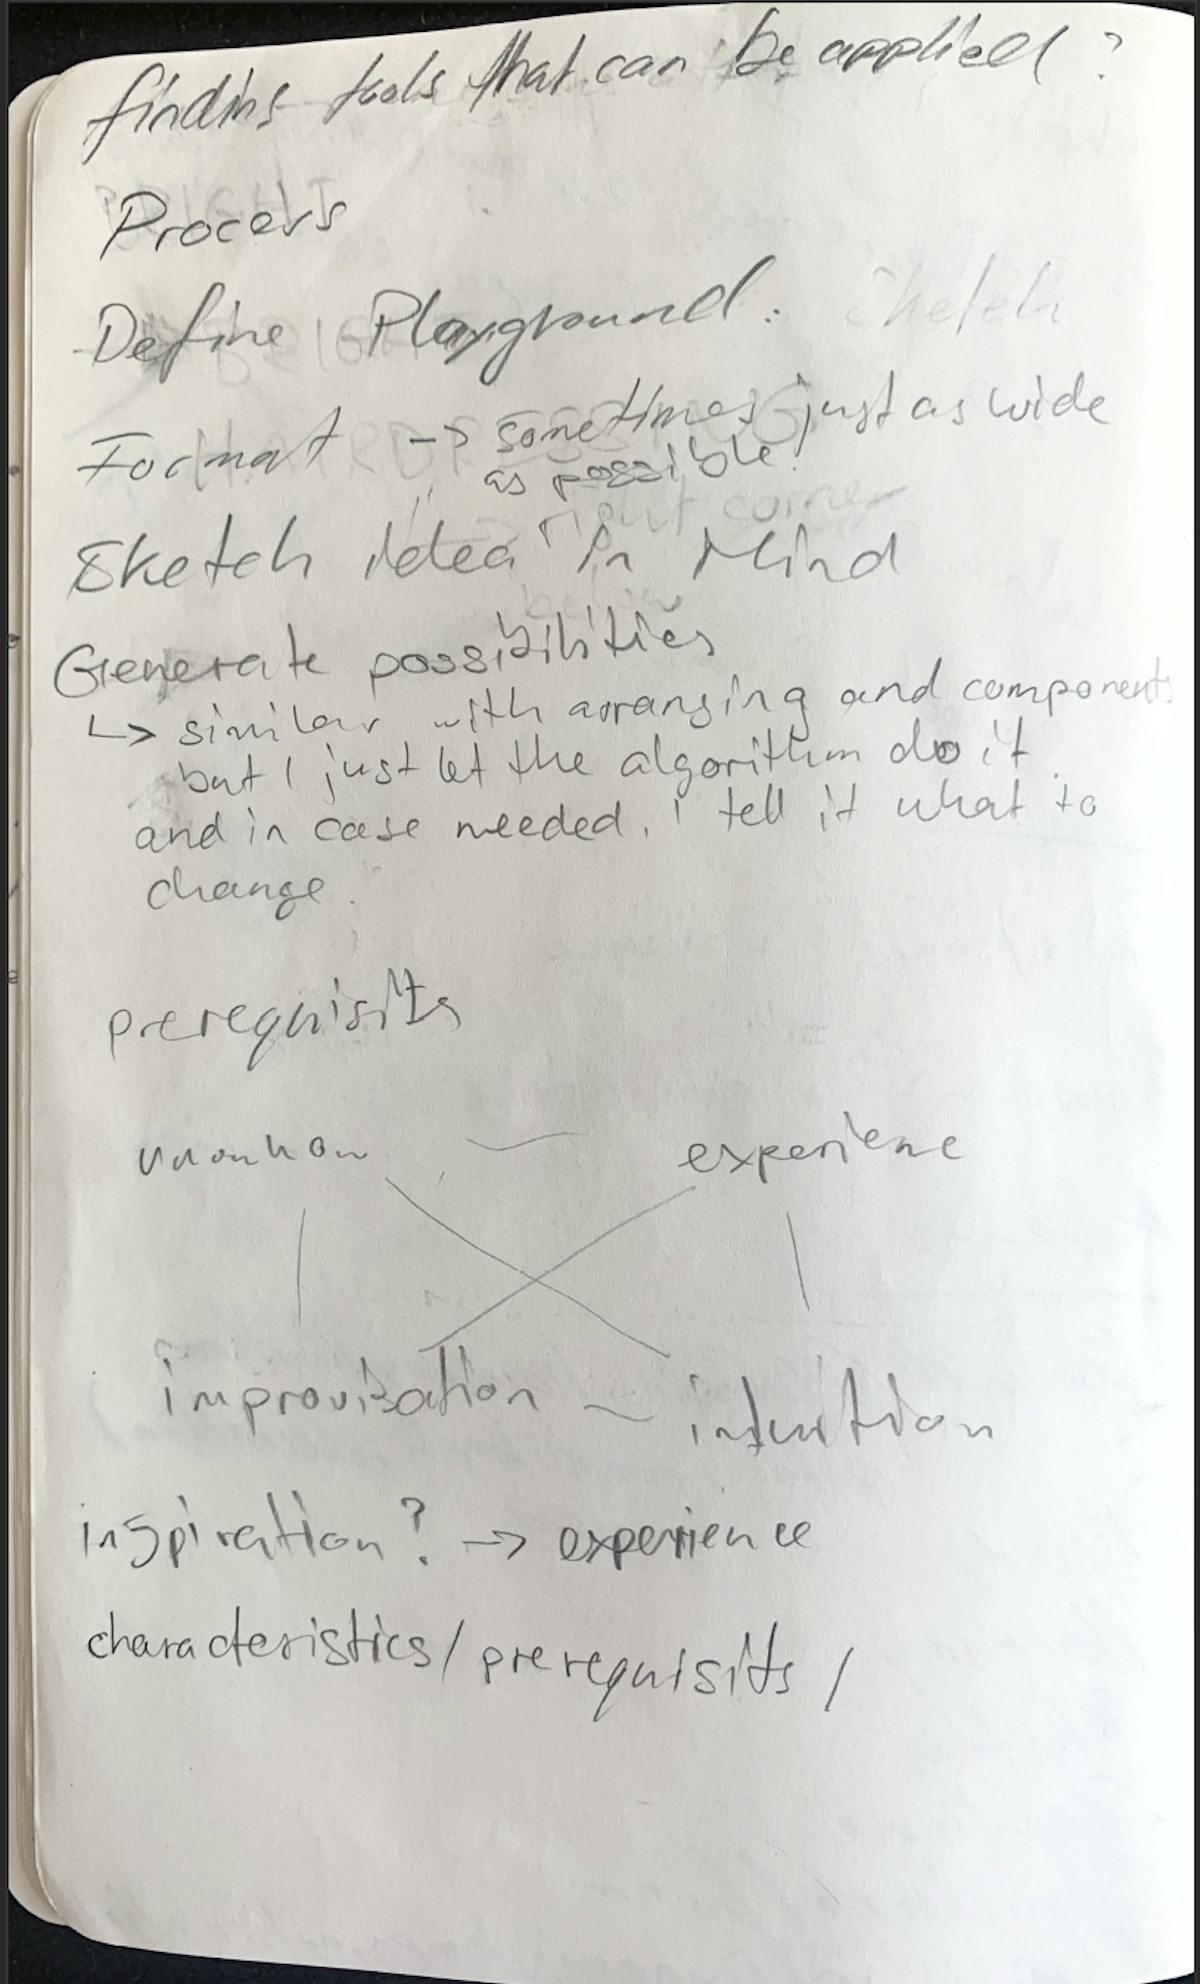 finding tools that can be applied?
Process
Define Playground: Sketch
Format -> sometimes just as wide
as possible!
Sketch idea in Mind
Generate possibilities
↳ similar with arranging and components
but I just let the algorithm do it.
and in case needed, I tell it what to
change.
prerequisits
experience
improvisation ~ intuition
inspiration? -> experience
characteristics / prerequisits /